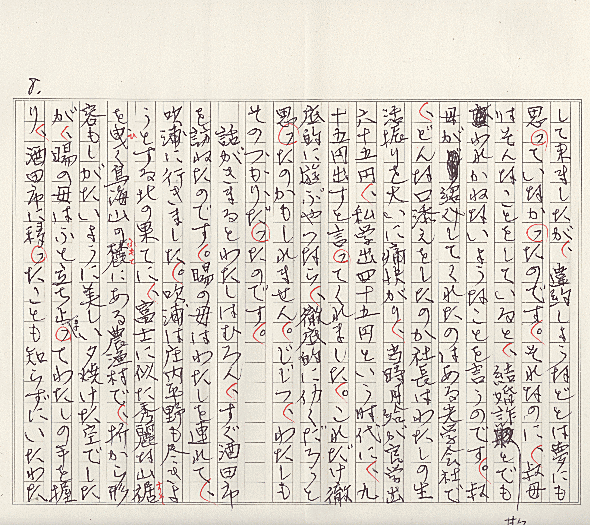 8.
して来ましたが、違約しようなどとは夢にも
思っていなかったのです。それなのに、叔母
はそんなことをしていると、結婚詐欺とでも
言われかねないようなことを言うのです。叔
母が紹介してくれたのはある光学会社で
、どんな口添えをしたのか社長はわたしの生
活振りを大いに痛快がり、当時月給が官学出
六十五円、私学出四十五円という時代に、九
十五円出すと言ってくれました。これだけ徹
底的に遊ぶやつなら、徹底的に働くだろうと
思ったのかもしれません。じじつ、わたしも
そのつもりだったのです。
話がきまるとわたしはむろん、すぐ酒田市
を訪ねたのです。暘の母はわたしを連れて、
吹浦に行きました。吹浦は庄内平野も尽きよ
うとする北の果てに、富士に似た秀麗な山裾
を曳く鳥海山の麓にある農漁村で、折から形
容もしがたいように美しい夕焼けた空でした
が、暘の母はふと立ち止まってわたしの手を握
り、酒田市に積ったことも知らずにいたわた